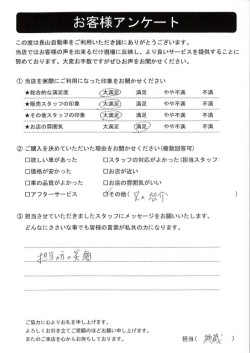 お客様アンケート
この度は長山自動車をご利用いただき誠にありがとうございます。
当店ではお客様の声を出来るだけ現場に反映し、より良いサービスを提供することに
努めております。大変お手数ですがぜひお声をお聞かせください
① 当店を実際にご利用になった印象をお聞かせください
★総合的な満足度 大満足 満足 やや不満 不満
★販売スタッフの印象 大満足 満足 やや不満 不満
★その他スタッフの印象 大満足 満足 やや不満 不満
★お店の雰囲気 大満足 満足 やや不満 不満
② ご購入を決めていただいた理由をお聞かせください(複数回答可)
□欲しい車があった □スタッフの対応がよかった(担当スタッフ:
□価格が安かった □お店が近い
□車の品質がよかった □お店の雰囲気がいい
□アフターサービス □その他( 兄の紹介 )
③ 担当させていただきましたスタッフにメッセージをお願いいたします。
どんなにささいな事でも皆様の言葉が私共の力になります。
担当の方の笑顔
ご協力に心よりお礼を申し上げます。
よろしくお引き立てご愛顧のほどお願い申し上げます。
またのご来店を心からお待ちしております。
担当( )